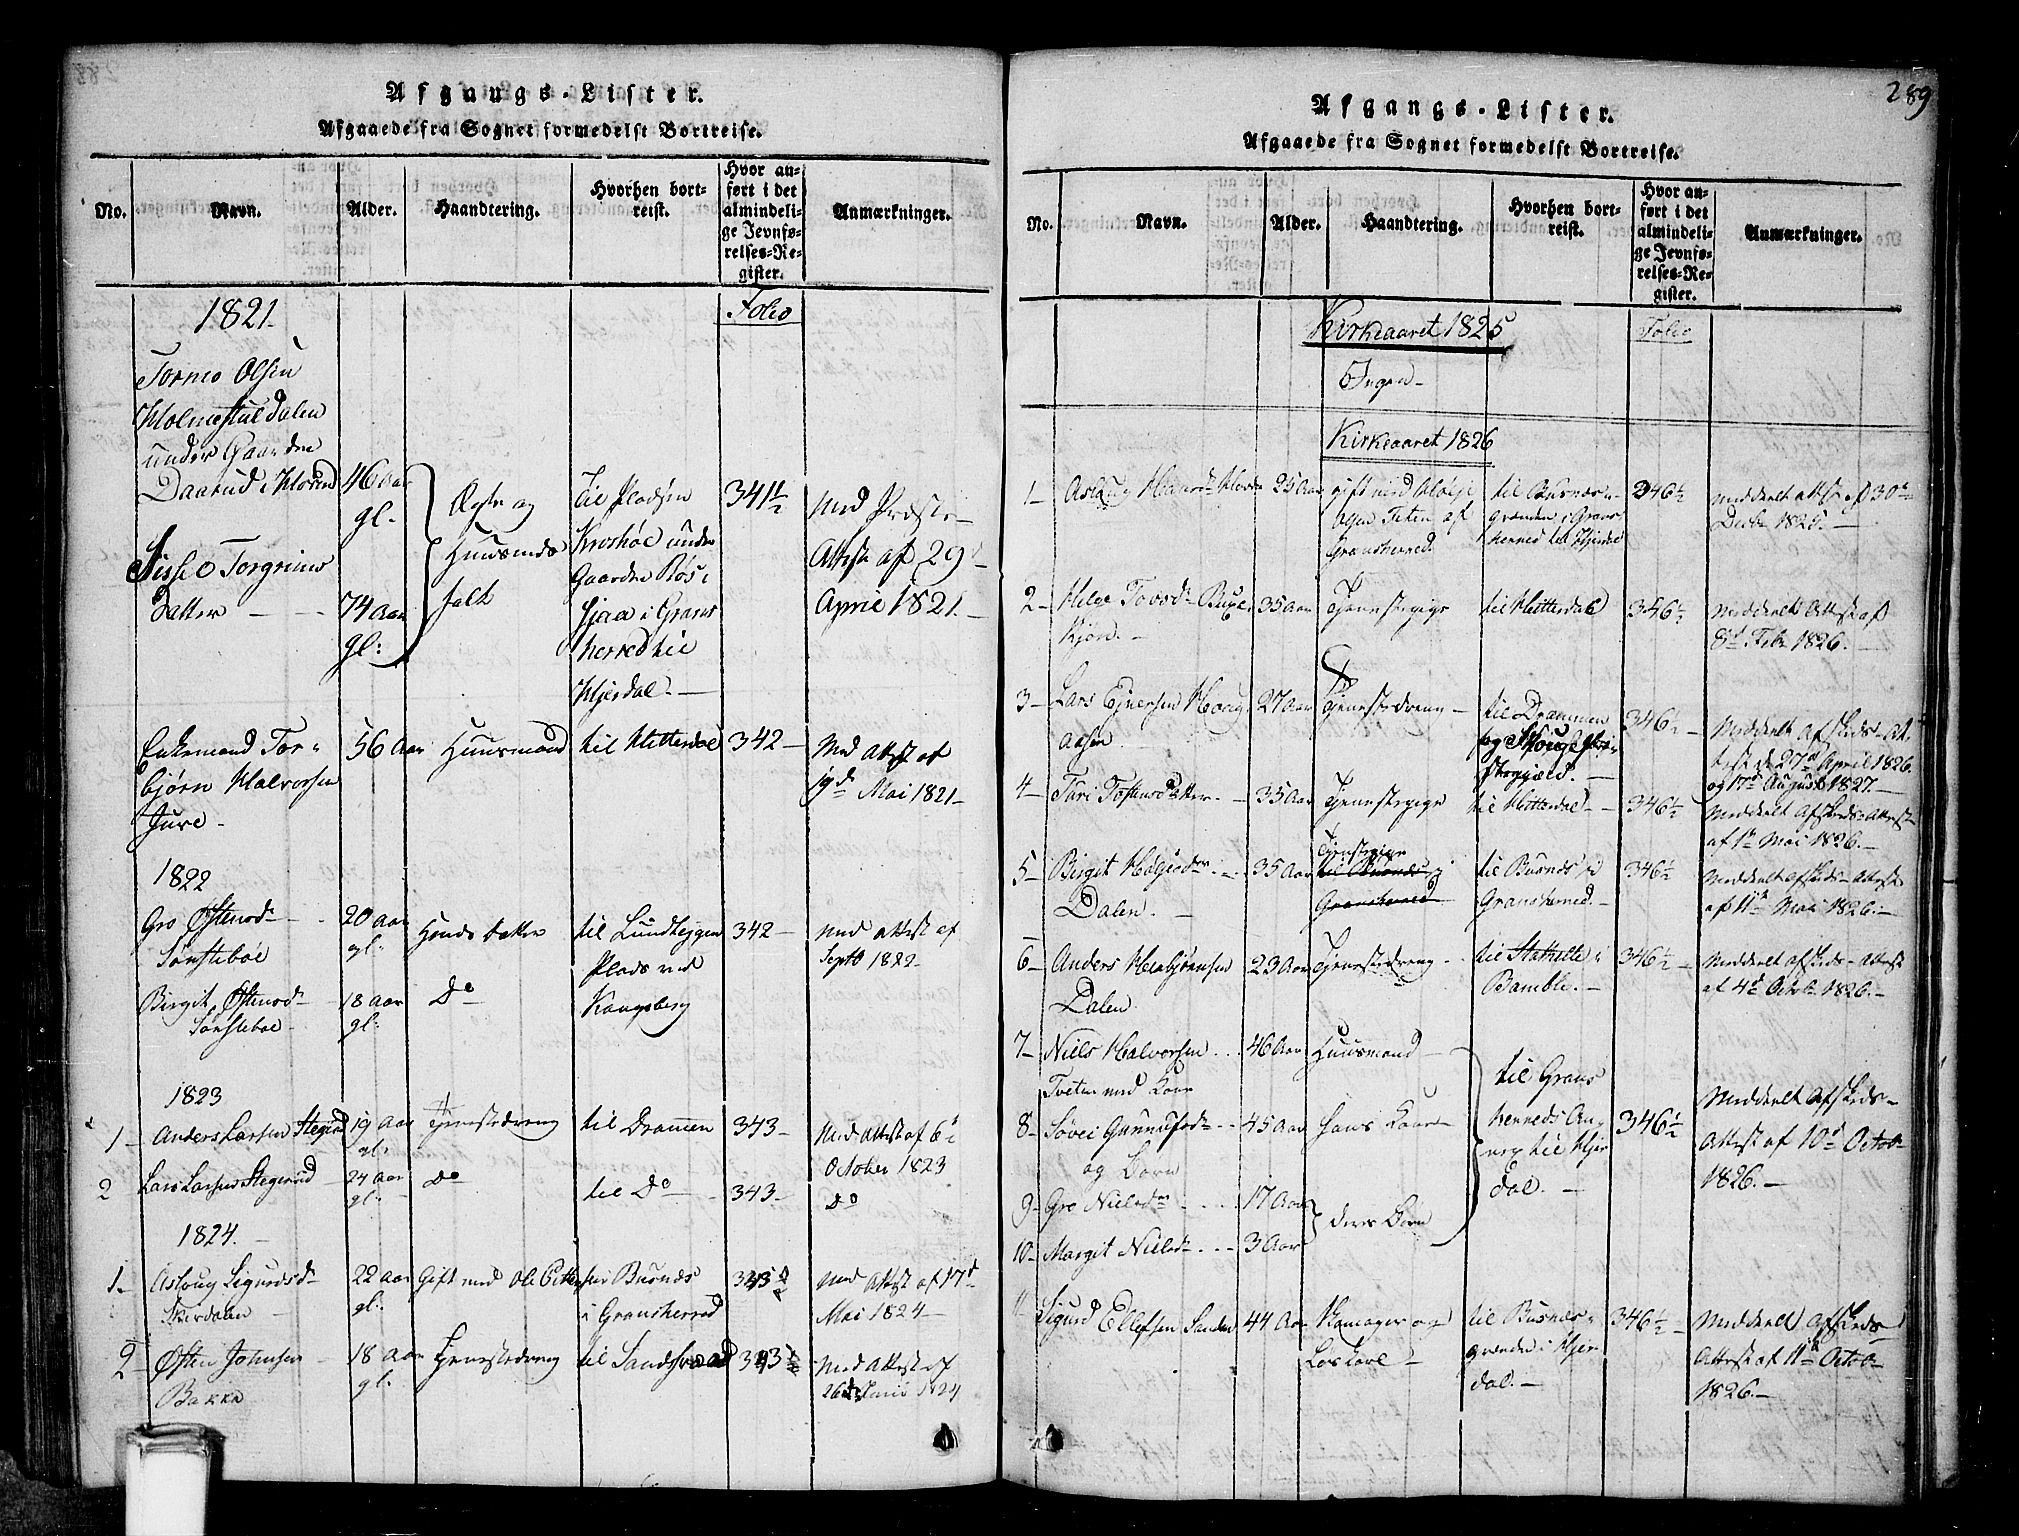 Afgangs-Lister.
Afgaaede fra Sognet formedelst Bortreise.
No.
Navn.
Alder.
Haandtering.
Hvorhen bort-
reist.
Hvor an-
ført i det
almindeli-
ge Jevnfø-
relses-Re-
gister.
Anmærkninger.
1821.
Folio
Tormo Olsen
Holmestuldalen
under Gaarden
Daarud i Hovind
46 Aar
gl.
Sissel Torgrims
datter
74 Aar
gl:
Ægte og
Huusmands
folk
til Pladsen
Kroshoe under
Gaarden Bøs i
Hjaa i Grans
herred til
Hjerdal.
341½
Med Præste
Attest af 29d
April 1821.
Enkemand Tor-
bjørn Halvorsen
Jure
56 Aar
Huusmand
til Hitterdal
342
Med Attest af
19d Mai 1821
1822
Gro Østensd
Sønsteboe
20 Aar
gl.
til Lundteigen
Plads ved
Kongsberg
342
Med Attest af
Septb 1822
Birgit Østensd
Sønsteboe
18 Aar
gl:
Do
1823
1
Anders Larsen Stegerud
19 Aar
gl:
Tjenestedreng
til Dramen
343
Med Attest af 6t
October 1823
2
Lars Larsen Stegerud
24 Aar
gl:
Do
til Do
343
Do
1824.
1.
Aslaug Sigurdsd
22 Aar
gl:
Gift med Ole
Busnæs
i Gransherred
Med Attest af 17d
Mai 1824
2
Østen Johnsen
Bakka
18 Aar
gl.
Tjenestedreng
til Sandsværd
343½
Med Attest af
1824
289
Afgangs-Lister.
Afgaaede fra Sognet formedelst Bortreise.
No.
Navn.
Alder.
Haandtering.
Hvorhen bort-
reist.
Hvor an-
ført i det
almindeli-
ge Jevnfø-
relses-Re-
gister.
Anmærkninger.
Kirkeaaret 1825
Folio
Ingen
Kirkeaaret 1826
1
Aslaug Hansd
25 Aar
gift med
Olsen Teten af
Gransherred
til Busnæs-
grenden i Grans
herred til Hjerdal
346½
Meddeelt Attest af 30t
Decbr 1825.
2
Helge Tovsd
35 Aar
Tjenestepige
til Hitterdal
346½
Meddeelt Attest af
8d Febr 1826.
3
Lars Ejversen Houg
aasen
27 Aar
Tjenestedreng
til Drammen
346½
Meddeelt Afskeds-At
test de 27d April 1826.
og 17d August 1827.
4
Turi Tostensdatter
35 Aar
Tjenestepige
til Hitterdal
346½
Meddeelt Afskeds-Attest
af 1t Mai 1826.
5
Birgit Helgesd
Dalen.
35 Aar
Tjenstepige
til Busnæs i
Gransherred
til Busnæs i
Gransherred.
346½
Meddeelt Afskeds-Attest
af 11t Mai 1826.
6
Anders Herbjørnsen
Dalen.
23 Aar
Tjenestedreng
til Stathelle i
Bamble.
346½
Meddeelt Afskeds-Attest
af 4d Octob 1826.
7
Niels Halvorsen
Tveten med Kone
46 Aar
Huusmand
til Grans
herreds An
nex til Hjer
dal.
346½
Meddeelt Afskeds-
Attest af 10d Octob
1826.
8
Søvei Gunulfsd
og Børn
45 Aar
Hans Kone
9
Gro Nielsd
17 Aar
deres Børn
10
Margit Nielsd
3 Aar
11
Sigurd Ellefsen Sanden
44 Aar
Løskarl
til Busnæs-
grenden i Hjer
dal.
346½
Meddeelt Afskeds
Attest af 11t Octob
1826.